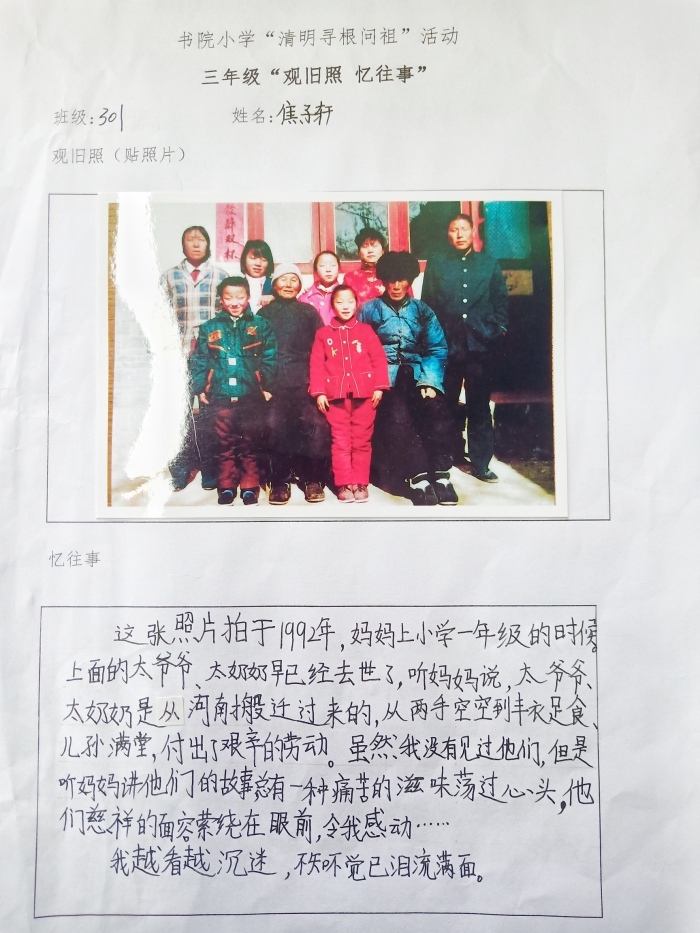 书院小学“清明寻根问祖”活动
三年级“观旧照 忆往事”
班级:301 姓名:焦子轩
观旧照（贴照片）
双杯
OK
忆往事
这张照片拍于1992年,妈妈上小学一年级的时候。
上面的太爷爷、太奶奶早已经去世了,听妈妈说,太爷爷、
太奶奶是从河南搬迁过来的,从两手空空到丰衣足食、
儿孙满堂,付出了艰辛的劳动。虽然我没有见过他们,但是
听妈妈讲他们的故事,总有一种痛苦的滋味荡过心头,他
们慈祥的面容萦绕在眼前,令我感动……
我越看越沉迷,不知不觉已泪流满面。